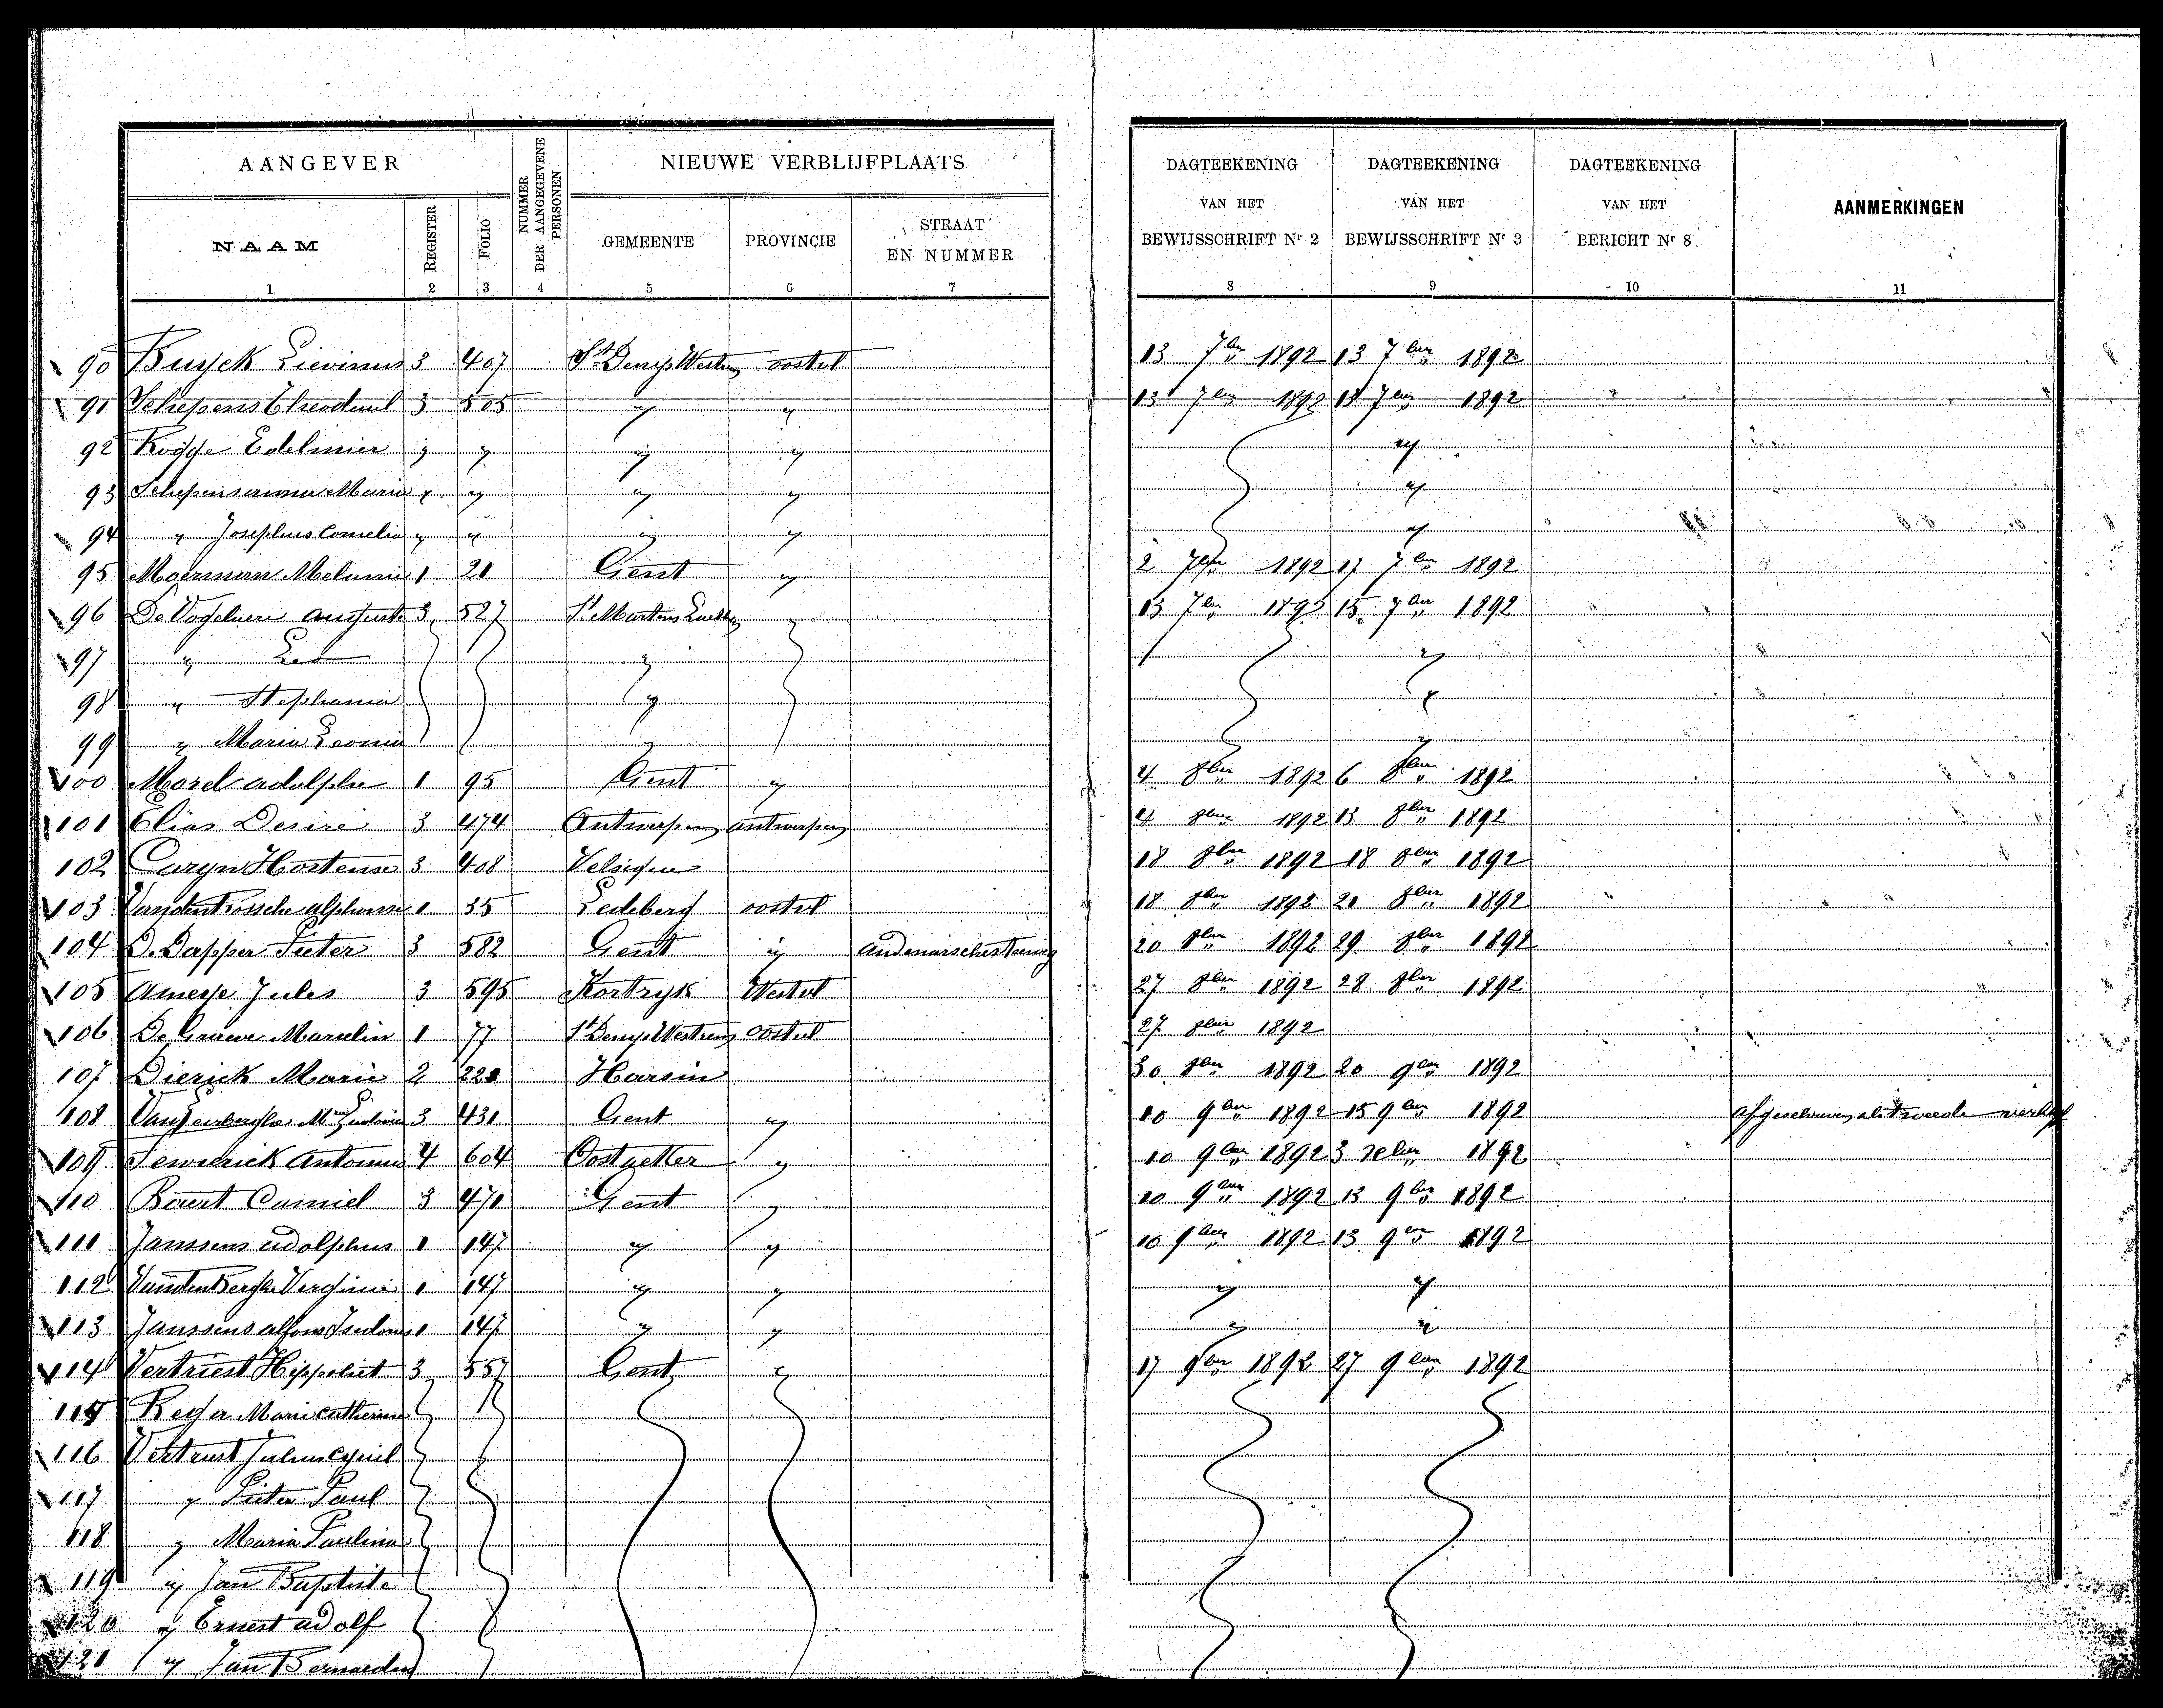 AANGEVER NUMMER DER AANGEGEVENE PERSONEN NIEUWE VERBLIJFPLAATS DAGTEEKENING DAGTEEKENING DAGTEEKENING AANMERKINGEN
NAAM REGISTER FOLIO GEMEENTE PROVINCIE STRAAT EN NUMMER VAN HET BEWIJSSCHRIFT Nr 2 VAN HET BEWIJSSCHRIFT Nr 3 VAN HET BERICHT Nr 8
1 2 3 4 5 6 7 8 9 10 11
90 Buyck Lievinus 3 407 St Denys Westrem oostvl 13 7ber 1892 13 7ber 1892
91 Schepens Theoduul 3 505 " " 13 7ber 1892 13 7ber 1892
92 Rogge Edelmier " " " " "
93 Schepens Marie " " " " "
94 " Josephus Cornelia " " " " "
95 Moerman Melanie 1 21 Gent " 2 7ber 1892 17 7ber 1892
96 De Vogelaere August 3 527 St Martens 13 7ber 1892 15 7ber 1892
97 " Leo " "
98 " Stephania " "
99 " Maria Leonia " "
100 Morel adolphe 1 95 Gent " 4 8ber 1892 6 8ber 1892
101 Elias Desire 3 474 Antwerpen antwerpen 4 8ber 1892 13 8ber 1892
102 Caryn Hortense 3 408 Velsique 18 8ber 1892 18 8ber 1892
103 Vandenbossche alphonse 1 35 Ledeberg oostvl 18 8ber 1892 21 8ber 1892
104 De Dapper Pieter 3 582 Gent " 20 8ber 1892 29 8ber 1892
105 Ameye Jules 3 595 Kortryk Westvl 27 8ber 1892 28 8ber 1892
106 De Graeve Marcelin 1 77 St Denys Westrem oostvl 27 8ber 1892
107 Dierick Marie 2 221 Harsin 30 8ber 1892 20 9ber 1892
108 3 431 Gent " 10 9ber 1892 15 9ber 1892 afgeschreven als tweede
109 Antonius 4 604 " 10 9ber 1892 3 1892
110 Baert Camiel 3 471 Gent " 10 9ber 1892 13 9ber 1892
111 Janssens adolphus 1 147 " " 10 9ber 1892 13 9ber 1892
112 Vandenberghe Verginie 1 147 " " " "
113 Janssens alfons Isidorus 1 147 " " " "
114 Vertriest Hippoliet 3 557 Gent " 17 9ber 1892 27 9ber 1892
115 Marie Catherine
116 Vertriest Julius Cyriel
117 " Pieter Paul
118 " Maria Paulina
119 " Jan Baptiste
120 " Ernest adolf
121 " Jan Bernardus